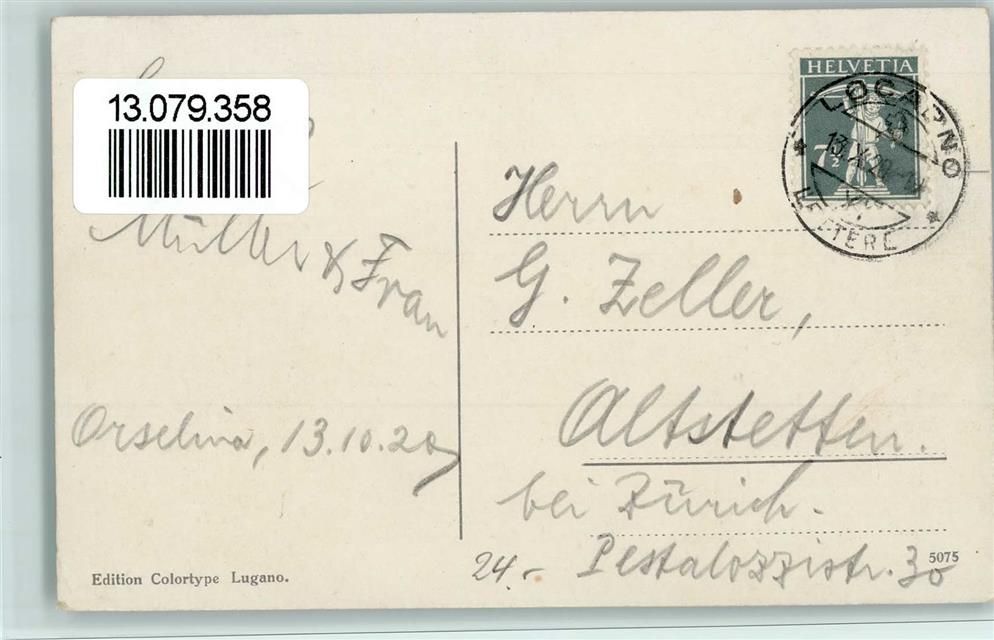 13.079.358
Müller & Frau
Orselina, 13.10.20
Edition Colortype Lugano.
HELVETIA
7½
LOCARNO
13.X.20
LETTERE
Herrn
G. Zeller,
Altstetten.
bei Zürich.
Pestalozzistr. 30
24.-
5075